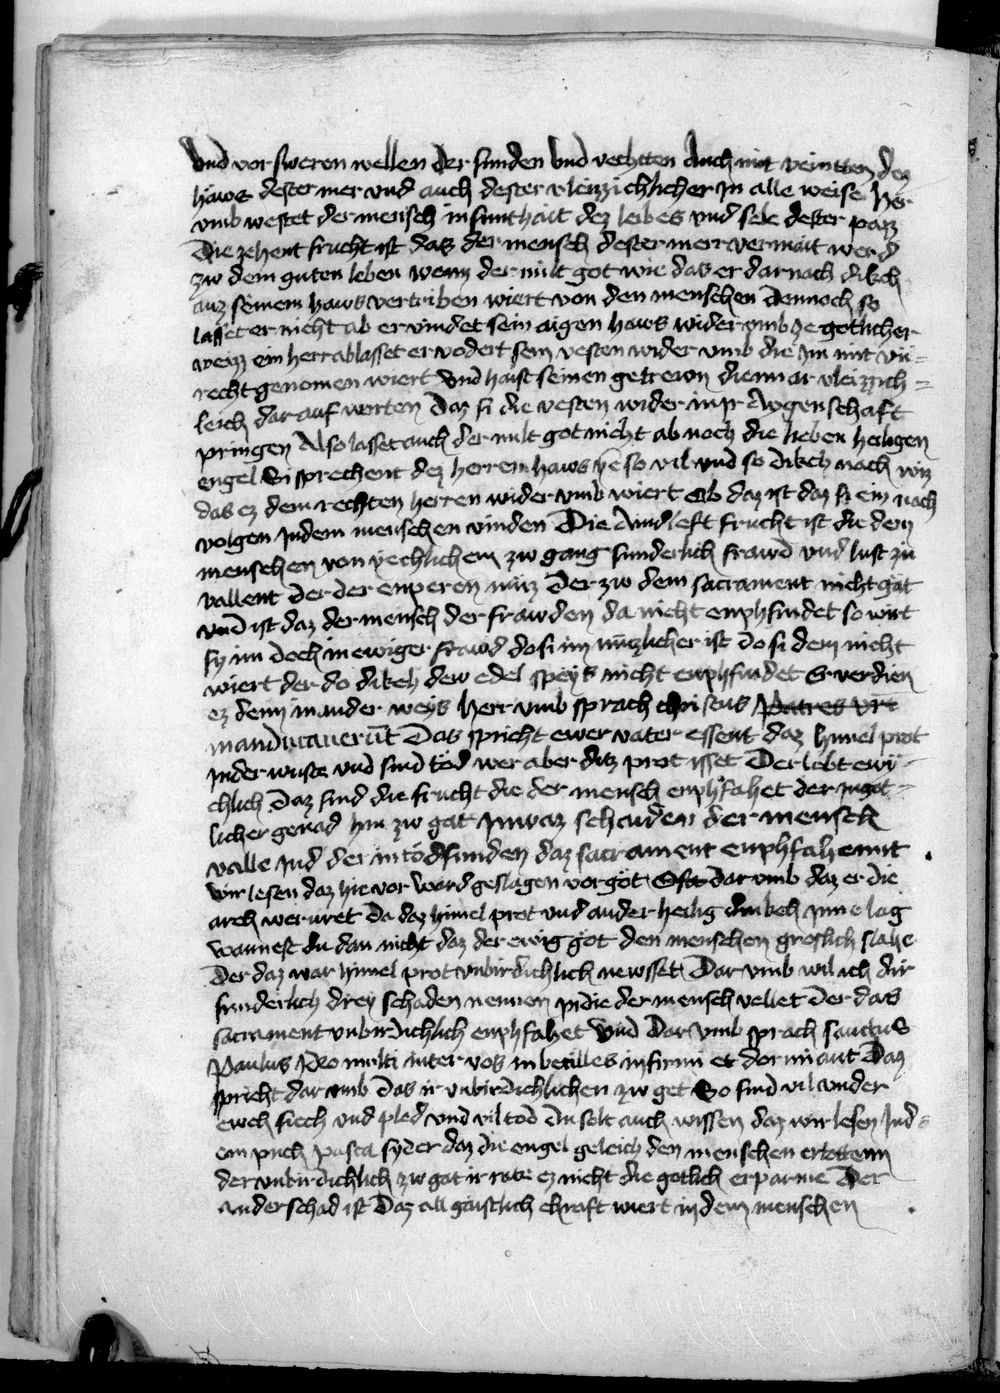 Vnd vor sweren wellen der sunden Vnd vechtten Auch mit veintten dez
haws dester mer vnd auch dester vleizzichlicher Jn alle weise Her
vmb westet der mensch in sunthait dez leibes vnd sele dester pazz
Die zehent frucht ist das der mensch dester merr vermait werd
zw dem guten leben wenn der milt got wie das er dar nach dikch
auz seinem haws vertriben wiert von den menschen dennoch so
lasset er nicht ab er vindet sein aigen haws wider vmb ze gotlicher
weizz ein herr ablasset er vodert sein vesten wider vmb die Jm mit vn=
recht genomen wiert Vnd haist seinen getrewn diennar vleizzich=
leich dar auf werten Daz si die vesten wider in ir Aygenschaft
pringen Also lasset auch der milt got nicht ab noch die lieben heiligen
engel Si sprechent dez herren haws ye so vil vnd so dikch nach wiz
das ez dem rechten herren wider vmb wiert Ob daz ist daz si ein nach
volgen Jndem menschen vinden Die Aindleft frucht ist die dem
menschen von yechlichem zw gang sunderlich frawd vnd lust zu
vallent Der der enperen muz Der zw dem sacrament nicht gat
vnd ist daz der mensch der frawden da nicht enphfindet so wirt
sy im doch in ewiger frawd do si im nutzlicher ist do si dem nicht
wiert der do dikch dew edel speys nicht enphfindet Er verdien
ez denn in ander weys Herr vmb sprach christus Patres vri
manducauerut Das spricht ewer vater essent daz himel prot
Jnder wuste vnd sind tod wer aber ditz prot isset Der lebt ewi=
chlich Daz sind die frucht die der mensch enphfahet der Jn got=
licher genad hin zw gat Jn waz schaiden der mensch
valle Jnd der in todsunden daz sacrament enphfahe mit
wir lesen daz hie vor ward geslagen vor got Ofa dar vmb daz er die
arch weruret Da daz himel prot vnd ander heilig dinkch Jnne lag
wannest du dan nicht daz der ewig got den menschen groslich slahe
Der daz war himel prot vnbirdichlich newsset Dar vmb wil ich dir
sunderlich drey schaden nennen Jn die der mensch vellet Der das
sacrament vnbirdichlich enphfahet Vnd Dar vmb sprach sanctus
Paulus Ideo multi inter vos inbecilles infirmi et dormiunt Daz
spricht dar vmb Das ir vnbirdichlichen zw get So sind vil vnder
ewch siech vnd plod vnd vil tod Du solt auch wissen daz wir lesen Jnd=
em puch pasca syder daz die engel geleich den menschen ertottenn
der vnbirdichlich zw gat ir rate ez nicht die gotlich erparme Der
ander schad ist Daz all gaistlich chraft wiert in dem menschen